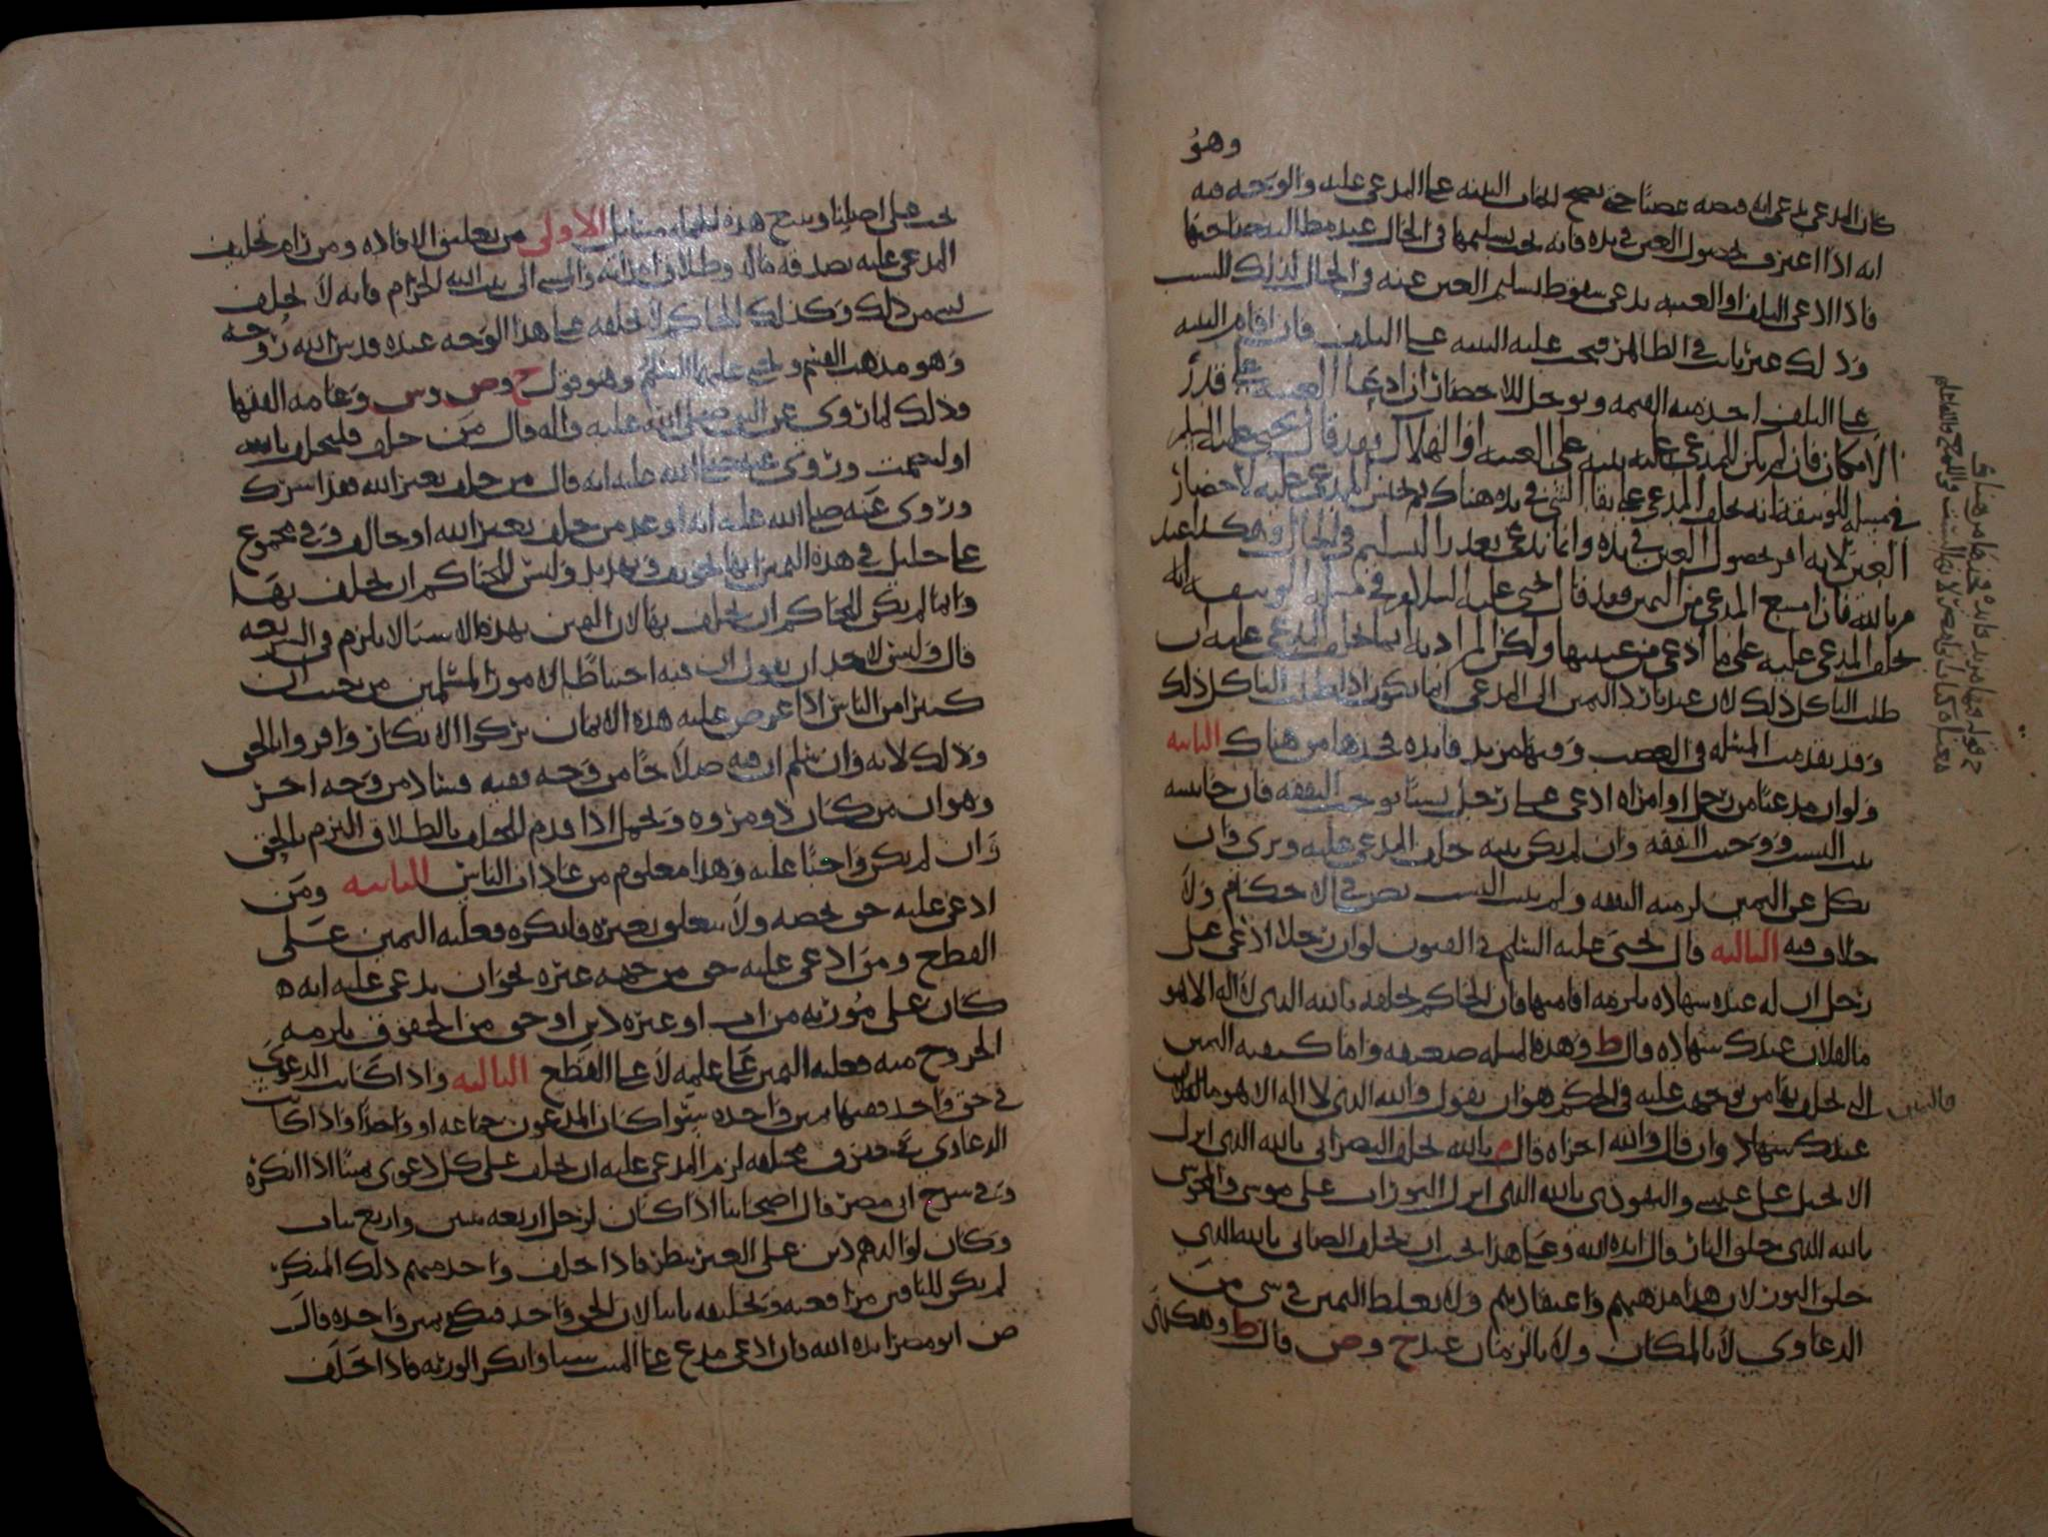 وهو
كان المدعي يدعي انه قبضه غصبًا حتى يصح البينه على المدعى عليه والوجه فيه
انه اذا اعترف بحصول العين في يده فانه يجب تسليمها في الحال عند مطالبة صاحبها
فاذا ادعى التلف او الغيبه يدعي سقوط تسليم العين عنه في الحال لذلك السبب
وذلك غير ثابت في الظاهر فيجب عليه البينه على التلف فان اقام البينه
على التلف اخذ منه القيمه ويوجل للاحضار ان ادعا الغيبه على قدر
الامكان فان لم يكن للمدعى عليه بينه على الغيبه او الهلاك فقد قال يحيى عليه السلم
في مسله الوسقه انه يحلف المدعي على بقا الشي في يده هناك ثم يحبس المدعى عليه لاحضار
العين لانه اقر بحصول العين في يده وانما يدعي تعذر التسليم في الحال وهكذا عند
م بالله فان امتنع المدعي من اليمين فقد قال يحيى عليه السلام في مسله الوسقه انه
يحلف المدعى عليه على ما ادعى من غيبتها ولكن المراد به انما يحلف المدعى عليه ان
طلب الناكل ذلك لان عندنا رد اليمين الى المدعي انما يكون اذا طلب الناكل ذلك
وقد تقدمت المسله في الغصب وفيها مزيد فايده فخذها من هناك الثانيه
ولو ان مدعيًا من رجل او امراه ادعى على رجل نسبًا يوجب النفقه فان جا ببينه
ثبت النسب ووجبت النفقه وان لم يكن بينه حلف المدعى عليه وبرى وان
نكل عن اليمين لزمته النفقه ولم يثبت النسب نص في الاحكام ولا
خلاف فيه الثالثه قال يحيى عليه السلم في الفنون لو ان رجلا ادعى على
رجل ان له عنده شهاده يلزمه اقامتها فان الحاكم يحلفه بالله الذي لا اله الا هو
ما لفلان عندك شهاده قال ط وهذه المسله ضعيفه واما كيفيه اليمين
التي يحلف بها من توجهت عليه في الحكم هو ان يقول والله الذي لا اله الا هو ما لفلان
عندك شهاده وان قال والله اجزاه قال م بالله يحلف النصراني بالله الذي انزل
الانجيل على عيسى واليهودي بالله الذي انزل التوراه على موسى والمجوسي
بالله الذي خلق النار قال ايده الله وعلى هذا يجب ان يحلف الصابي بالله الذي
خلق النور لان هذا مذهبهم واعتقادهم ولا يغلظ اليمين في شي من
الدعاوي لا بالمكان ولا بالزمان عند ح وص قال ط وهكذا
يجب على اصلنا وينبع هذه الجمله مسايل الاولى من تعليق الافاده ومن رام تحليف
المدعى عليه بصدقه ماله وطلاق امراته والمشي الى بيت الله الحرام فانه لا يحلف
بشي من ذلك وكذلك الحاكم لا يحلفه على هذا الوجه عنده قدس الله روحه
وهو مذهب القسم ويحيى عليهما السلم وهو قول ح وص وس وعامه الفقها
وذلك لما روي عن النبي صلى الله عليه واله قال من حلف فليحلف بالله
او ليصمت وروي عنه صلى الله عليه انه قال من حلف بغير الله فقد اشرك
وروي عنه صلى الله عليه انه اوعد من حلف بغير الله او حالف وفي مجموع
علي خليل في هذه اليمين انها تخويف وتهديد وليس للحاكم ان يحلف بها
وانما لم يكن للحاكم ان يحلف بها لان اليمين بهذه الاشيا لا يلزم في الشريعه
قال وليس لاحد ان يقول ان فيه احتياطًا لامور المسلمين من حيث ان
كثيرا من الناس اذا عرض عليه هذه الايمان تركوا الانكار واقروا بالحق
وذلك لانه وان سلم ان فيه صلاحًا من وجه ففيه فساد من وجه اخر
وهو ان من كان ذو مروه وتجمل اذا قدم للحلف بالطلاق التزم بالحق
وان لم يكن واجبًا عليه وهذا معلوم من عادات الناس الثانيه ومن
ادعي عليه حق يخصه ولا يتعلق بغيره فانكره فعليه اليمين على
القطع ومن ادعي عليه حق من جهه غيره نحو ان يدعى عليه انه
كان على مورثه من اب او غيره دين او حق من الحقوق يلزمه
الخروج منه فعليه اليمين على علمه لا على القطع الثالثه واذا كانت الدعوى
في حق واحد ففيها يمين واحده سوا كان المدعون جماعه او واحدًا واذا كانت
الدعاوي في حقوق مختلفه لزم المدعى عليه ان يحلف على كل دعوى يمينًا اذا انكره
وفي شرح ابي مضر قال اصحابنا اذا كان لرجل اربعه بنين واربع بنات
وكان لوالدهم دين على الغير ينظر فاذا حلف واحد منهم ذلك المنكر
لم يكن للباقين مرافعته وتحليفه ثانيا لان الحق واحد فيكفي يمين واحده قال
ص ابو مضر ايده الله فان ادعى مدع على الميت شيا وانكر الورثه فاذا حلف
ح قوله وفيها مزيد فايده فخذها من هناك
فاليمين